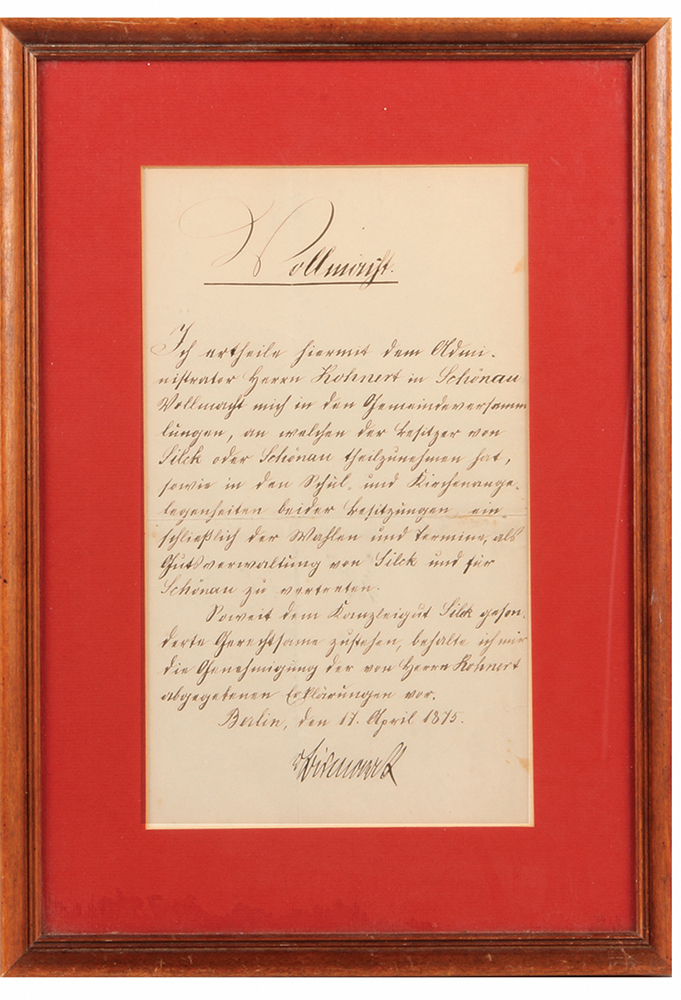 Vollmacht.
Ich ertheile hiermit dem Admi-
nistrator Herrn Kohnert in Schönau
Vollmacht mich in den Gemeindeversamm
lungen, an welchen der Besitzer von
Silck oder Schönau theilzunehmen hat,
sowie in den Schul- und Kirchenange-
legenheiten beider Besitzungen ein-
schließlich der Wahlen und Termine, als
Gutsverwaltung von Silck und für
Schönau zu vertreten.
Soweit dem Kanzleigut Silck geson-
derte Gerechtsame zustehen, behalte ich mir
die Genehmigung der von Herrn Kohnert
abgegebenen Erklärungen vor.
Berlin, den 17. April 1875.
vBismarck